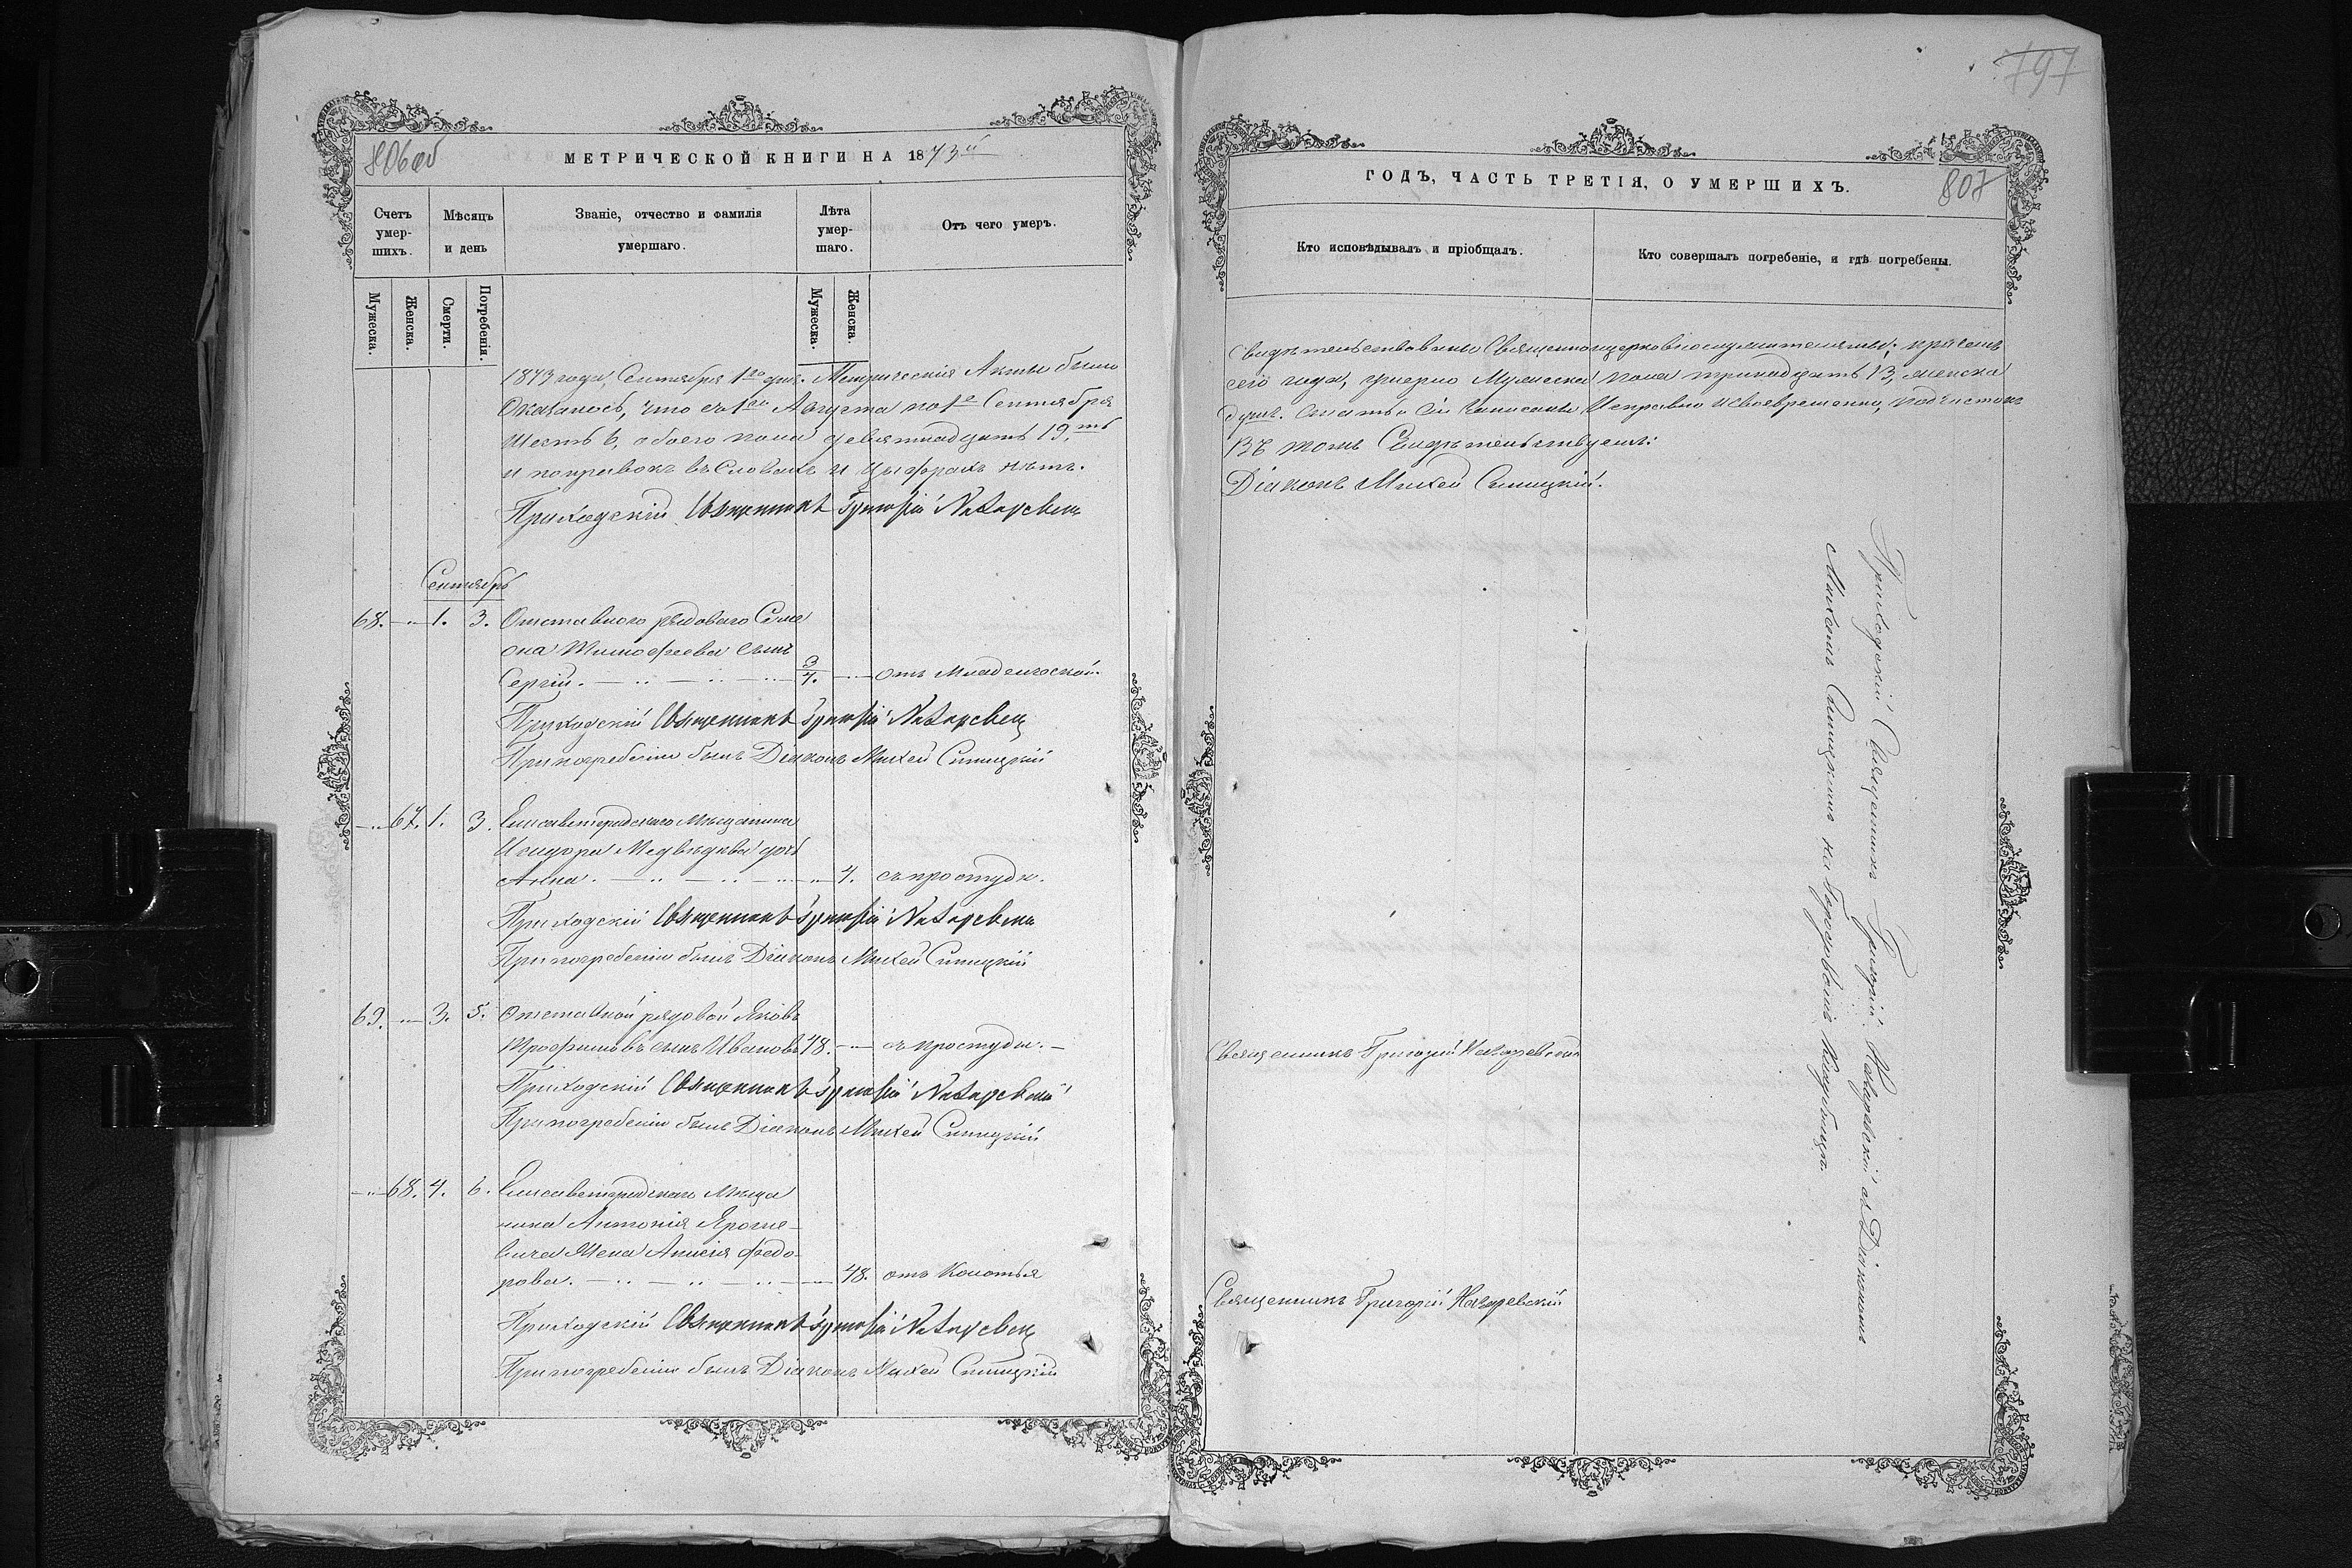 806об
МЕТРИЧЕСКОЙ КНИГИ НА 1873й
Счетъ умер-шихъ.
Мѣсяцъ и день
Званіе, отчество и фамилія умершаго.
Лѣта умер-шаго.
Отъ чего умеръ.
Мужеска.
Женска.
Смерти.
Погребенія.
Мужеска.
Женска.
1873 года, Сентября 1го дня. Метрическія Акты были
Оказалось, что съ 1го Августа по 1е Сентября
Шесть 6, обоего пола девятнадцать 19,ть
и поправокъ въ Словахъ и цыфрахъ нѣтъ.
Приходскій Священникъ Григорій Назаревск
Сентябрь
68. — 1. 3. Отставного рядоваго Симе
она Тимофеева сынъ
Сергій. 3/4. — отъ младенческой.
Приходскій Священникъ Григорій Назаревск
При погребеніи былъ Діаконъ Михей Синицкій
— 67. 1. 3. Елисаветградскаго Мѣщанина
Исидора Медвѣдева дочь
Анна. 4. съ простуды.
Приходскій Священникъ Григорій Назаревск
При погребеніи былъ Діаконъ Михей Синицкій
69. — 3. 5. Отставной рядовой Яковъ
Трофимовъ сынъ Ивановъ 48. — съ простуды. —
Приходскій Священникъ Григорій Назаревскій
При погребеніи былъ Діаконъ Михей Синицкій
— 68. 4. 6. Елисаветградскаго Мѣща
нина Антонія Яроше-
вича Жена Анисія Федо-
рова. 48. отъ Колотья
Приходскій Священникъ Григорій Назаревск
При погребеніи былъ Діаконъ Михей Синицкій
797
ГОДЪ, ЧАСТЬ ТРЕТІЯ, О УМЕРШИХЪ.
807
Кто исповѣдывалъ и пріобщалъ.
Кто совершалъ погребеніе, и гдѣ погребены.
Свидѣтельствованы Священноцерковнослужителями; причемъ
сего года, умерло Мужеска пола тринадцать 13, женска
душъ. Статьи сіи Записаны Исправно и своевременно, подчистокъ
Въ томъ Свидѣтельствуемъ:
Діаконъ Михей Синицкій.
Священникъ Григорій Назаревскій
Священникъ Григорій Назаревскій
Приходскій Священникъ Григорій Назаревскій съ Діакономъ
Михеемъ Синицкимъ на Городовомъ Кладбищѣ.